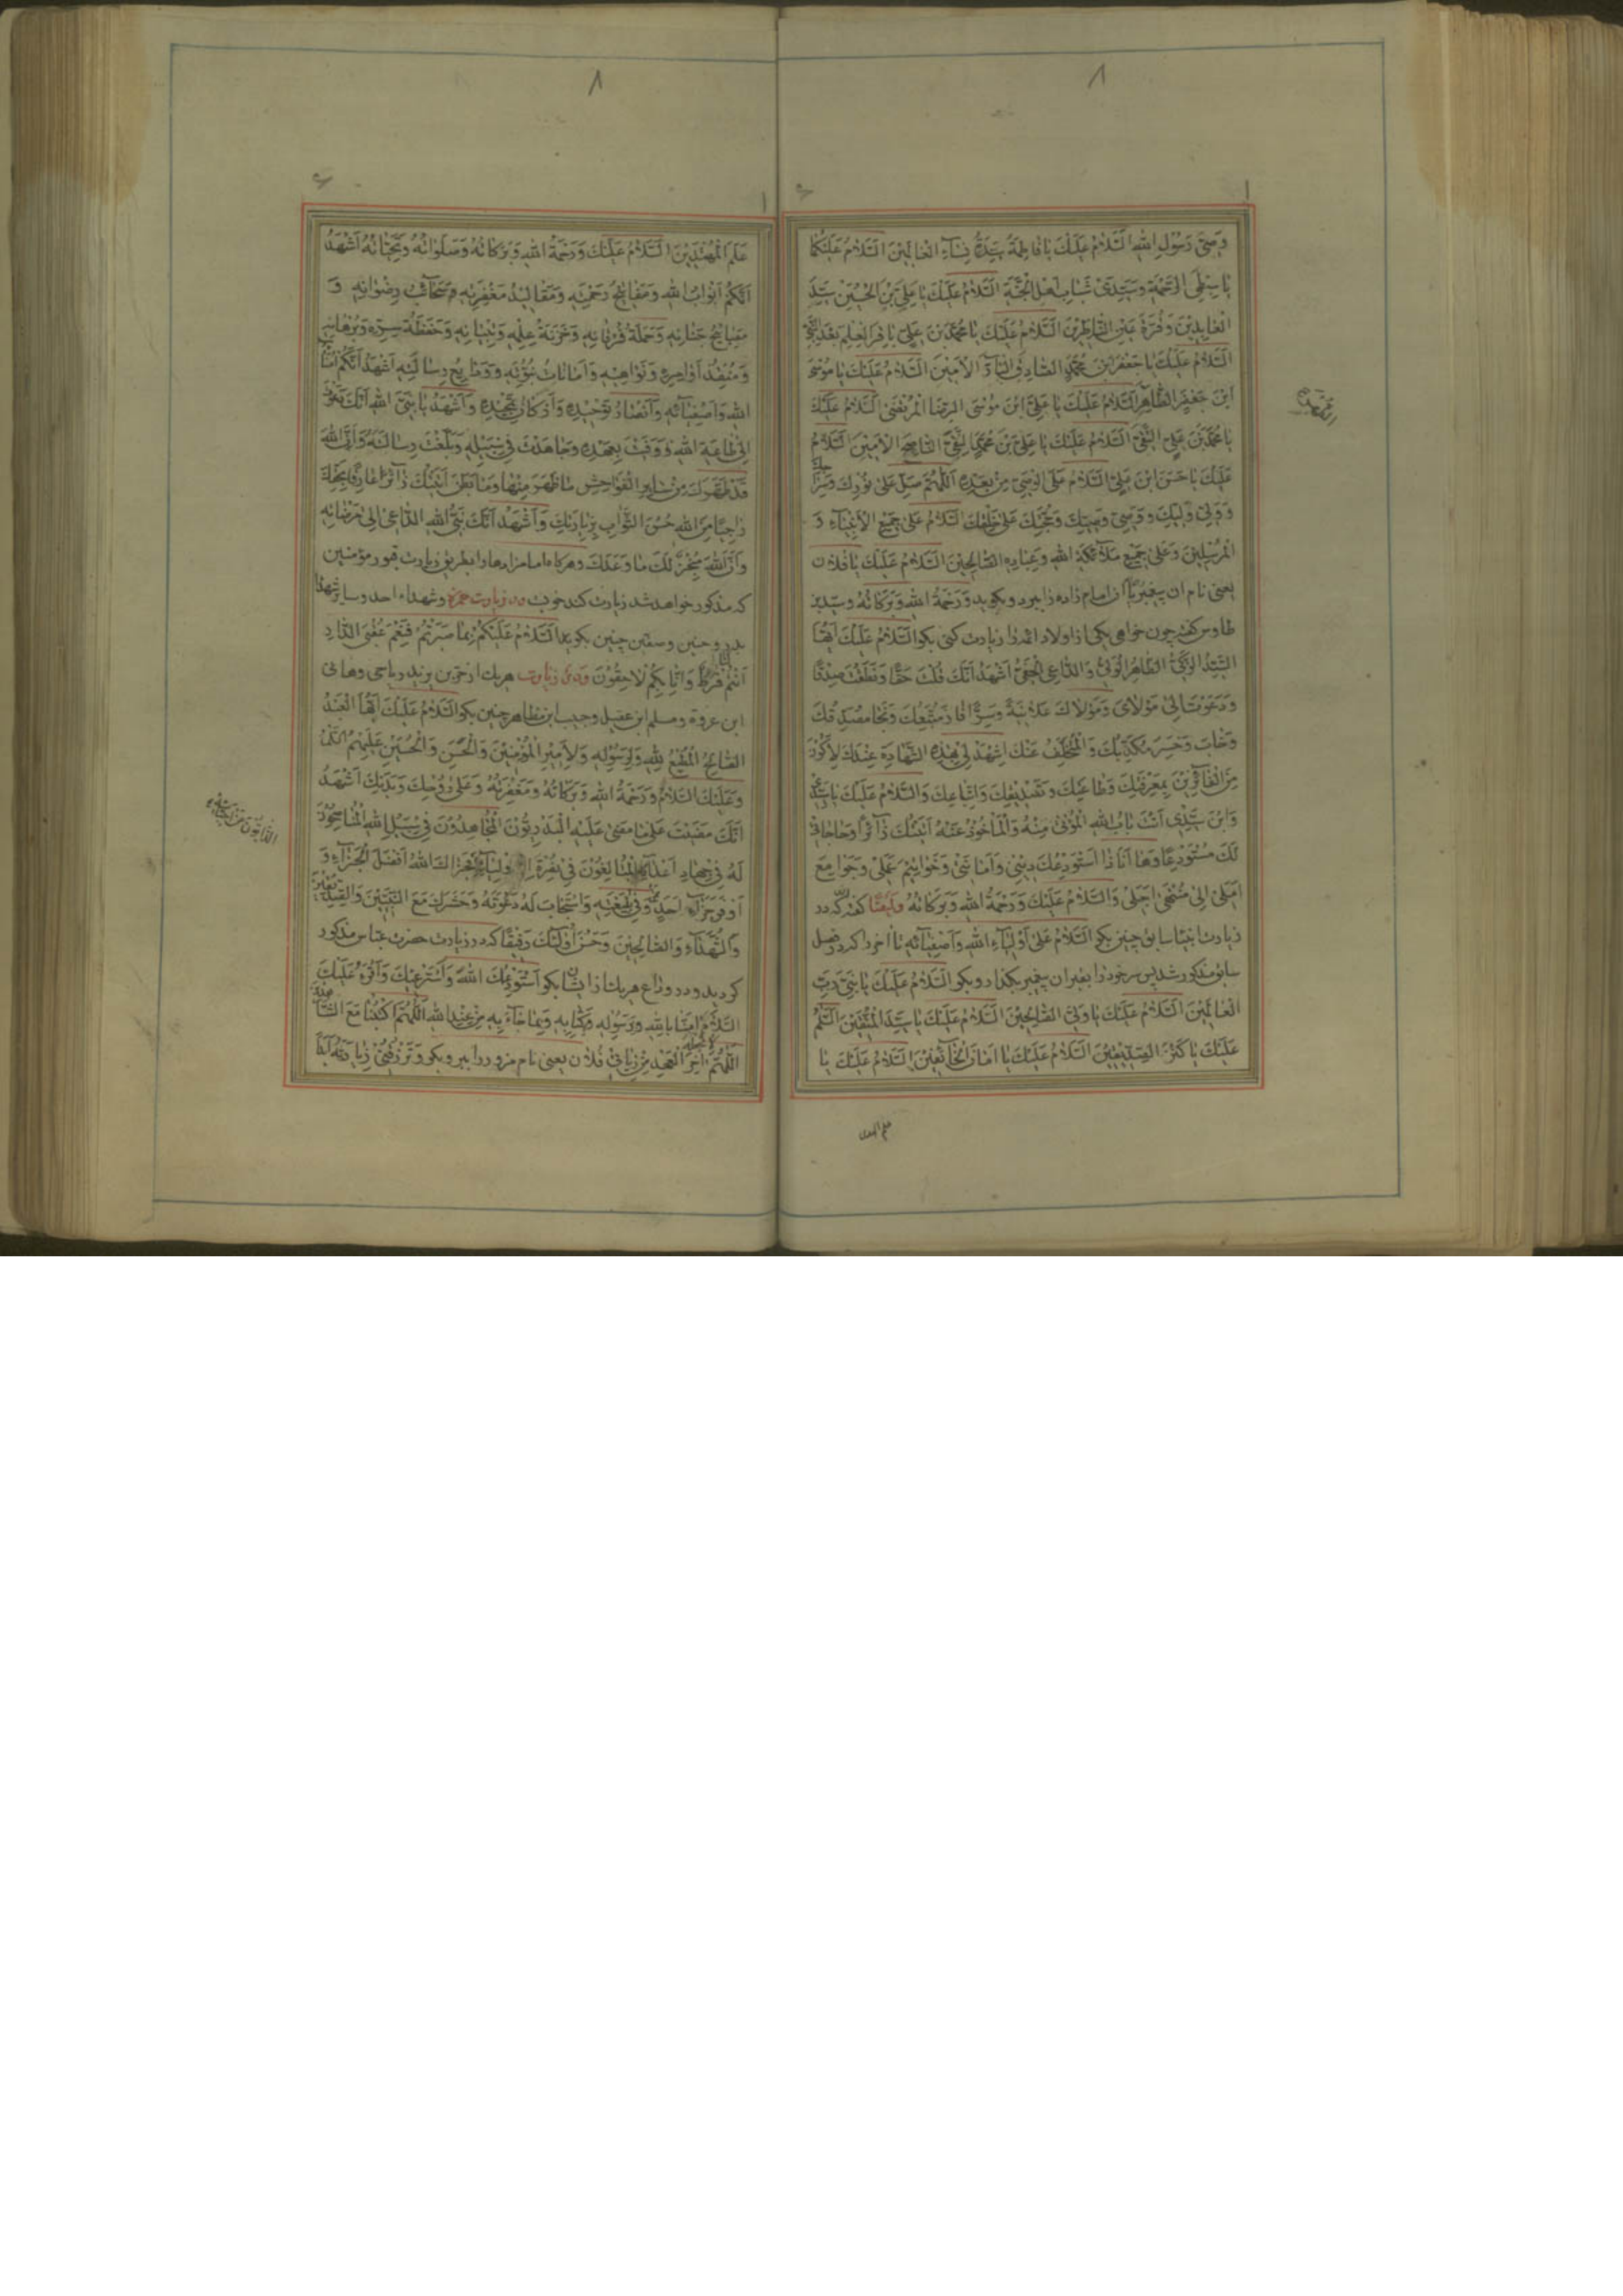 وَصِیَّ رَسُولِ اللهِ اَلسَّلامُ عَلَیْكِ یا فاطِمَةُ سَیِّدَةَ نِساءِ الْعالَمینَ اَلسَّلامُ عَلَیْكُما
یا سِبْطَیِ الرَّحْمَةِ وَسَیِّدَیْ شَبابِ اَهْلِ الْجَنَّةِ اَلسَّلامُ عَلَیْكَ یا عَلِیَّ بْنَ الْحُسَیْنِ سَیِّدَ
الْعابِدینَ وَقُرَّةَ عَیْنِ النّاظِرینَ اَلسَّلامُ عَلَیْكَ یا مُحَمَّدَ بْنَ عَلِیٍّ باقِرَ الْعِلْمِ بَعْدَ النَّبِیِّ
اَلسَّلامُ عَلَیْكَ یا جَعْفَرَ ابْنَ مُحَمَّدٍ الصّادِقَ الْبارَّ الْاَمینَ اَلسَّلامُ عَلَیْكَ یا مُوسَی
ابْنَ جَعْفَرٍ الطّاهِرَ اَلسَّلامُ عَلَیْكَ یا عَلِیَّ ابْنَ مُوسَی الرِّضَا الْمُرْتَضی اَلسَّلامُ عَلَیْكَ
یا مُحَمَّدَ بْنَ عَلِیٍّ التَّقِیَّ اَلسَّلامُ عَلَیْكَ یا عَلِیَّ بْنَ مُحَمَّدٍ النَّقِیَّ النّاصِحَ الْاَمینَ اَلسَّلامُ
عَلَیْكَ یا حَسَنَ ابْنَ عَلِیٍّ اَلسَّلامُ عَلَی الْوَصِیِّ مِنْ بَعْدِهِ اَللّهُمَّ صَلِّ عَلی نُورِكَ وَسِراجِكَ
وَوَلِیِّ وَلِیِّكَ وَوَصِیِّ وَصِیِّكَ وَحُجَّتِكَ عَلی خَلْقِكَ اَلسَّلامُ عَلی جَمیعِ الْاَنْبِیاءِ وَ
الْمُرْسَلینَ وَعَلی جَمیعِ مَلآئِكَةِ اللهِ وَعِبادِهِ الصّالِحینَ اَلسَّلامُ عَلَیْكَ یا فلان
یعنی نام ان پیغمبر یا ان امام زاده را ببرد و بكوید وَرَحْمَةُ اللهِ وَبَرَكاتُهُ وسید بن
طاوس كفته چون خواهی یكی از اولاد ائمه را زیارت كنی بكو اَلسَّلامُ عَلَیْكَ اَیُّهَا
السَّیِّدُ الزَّكِیُّ الطّاهِرُ الْوَلِیُّ وَالدّاعِی الْحَفِیُّ اَشْهَدُ اَنَّكَ قُلْتَ حَقّاً وَنَطَقْتَ صِدْقاً
وَدَعَوْتَ اِلی مَوْلایَ وَمَوْلاكَ عَلانِیَةً وَسِرّاً فازَ مُتَّبِعُكَ وَنَجا مُصَدِّقُكَ
وَخابَ وَخَسِرَ مُكَذِّبُكَ وَالْمُتَخَلِّفُ عَنْكَ اِشْهَدْ لی بِهذِهِ الشَّهادَةِ عِنْدَكَ لِاَكُونَ
مِنَ الْفائِزینَ بِمَعْرِفَتِكَ وَطاعَتِكَ وَتَصْدیقِكَ وَاتِّباعِكَ وَالسَّلامُ عَلَیْكَ یا سَیِّدی
وَابْنَ سَیِّدی اَنْتَ بابُ اللهِ الْمُؤْتی مِنْهُ وَالْمَأْخُوذُ عَنْهُ اَتَیْتُكَ زائِراً وَحاجاتی
لَكَ مُسْتَوْدِعاً وَها اَنَا ذا اَسْتَوْدِعُكَ دینی وَاَمانَتی وَخَواتیمَ عَمَلی وَجَوامِعَ
اَمَلی اِلی مُنْتَهی اَجَلی وَالسَّلامُ عَلَیْكَ وَرَحْمَةُ اللهِ وَبَرَكاتُهُ وَاَیْضاً كفته كه در
زیارت انبیا سابق چنین بكو اَلسَّلامُ عَلی اَوْلِیاءِ اللهِ وَاَصْفِیائِهِ تا اخر را كه در فصل
سابق مذكور شد پس سر خود را بقبر ان پیغمبر بكذارد و بكو اَلسَّلامُ عَلَیْكَ یا نَبِیَّ رَبِّ
الْعالَمینَ اَلسَّلامُ عَلَیْكَ یا وَلِیَّ الصّالِحینَ اَلسَّلامُ عَلَیْكَ یا سَیِّدَ الْمُتَّقینَ اَلسَّلامُ
عَلَیْكَ یا كَنْزَ الصِّدّیقینَ اَلسَّلامُ عَلَیْكَ یا اَمانَ الْخائِفینَ اَلسَّلامُ عَلَیْكَ یا
علم المهتدین
۸
عَلَمَ الْمُهْتَدینَ اَلسَّلامُ عَلَیْكَ وَرَحْمَةُ اللهِ وَبَرَكاتُهُ وَصَلَواتُهُ وَتَحِیّاتُهُ اَشْهَدُ
اَنَّكُمْ اَبْوابُ اللهِ وَمَفاتیحُ رَحْمَتِهِ وَمَقالیدُ مَغْفِرَتِهِ وَسَحائِبُ رِضْوانِهِ وَ
مَصابیحُ جِنانِهِ وَحَمَلَةُ فُرْقانِهِ وَخَزَنَةُ عِلْمِهِ وَتِبْیانِهِ وَحَفَظَةُ سِرِّهِ وَبُرْهانِهِ
وَمُنْفِذُ اَوامِرِهِ وَنَواهیهِ وَاَماناتُ نُبُوَّتِهِ وَوَدایِعُ رِسالَتِهِ اَشْهَدُ اَنَّكُمْ اُمَناءُ
اللهِ وَاَصْفِیائِهِ وَاَنْصارُ تَوْحیدِهِ وَاَرْكانُ تَمْجیدِهِ وَاَشْهَدُ یا نَبِیَّ اللهِ اَنَّكَ دَعَوْتَ
اِلی طاعَةِ اللهِ وَوَفَیْتَ بِعَهْدِهِ وَجاهَدْتَ فی سَبیلِهِ وَبَلَّغْتَ رِسالَتَهُ وَاَنَّ اللهَ
قَدْ طَهَّرَكَ مِنْ سایِرِ الْفَواحِشِ ما ظَهَرَ مِنْها وَما بَطَنَ اَتَیْتُكَ زائِراً عارِفاً بِحَقِّكَ
راجِیاً مِنَ اللهِ حُسْنَ الثَّوابِ بِزِیارَتِكَ وَاَشْهَدُ اَنَّكَ نَبِیُّ اللهِ الدّاعی اِلی مَرْضاتِهِ
وَاَنَّ اللهَ مُنْجِزٌ لَكَ ما وَعَدَكَ وهركاه امامزادها را بطریق زیارت قبور مؤمنین
كه مذكور خواهد شد زیارت كند خوب در زیارت حمزه وشهداء احد وسایر شهدا
بدر وحنین وصفین چنین بكوید اَلسَّلامُ عَلَیْكُمْ بِما صَبَرْتُمْ فَنِعْمَ عُقْبَی الدّارِ
اَنْتُمْ لَنا فَرَطٌ وَاِنّا بِكُمْ لاحِقُونَ در زیارت هریك از حر بن یزید ریاحی وهانی
ابن عروة ومسلم ابن عقیل وحبیب ابن مظاهر چنین بكو اَلسَّلامُ عَلَیْكَ اَیُّهَا الْعَبْدُ
الصّالِحُ الْمُطیعُ لِلّهِ وَلِرَسُولِهِ وَلِاَمیرِ الْمُؤْمِنینَ وَالْحَسَنِ وَالْحُسَیْنِ عَلَیْهِمُ السَّلامُ
وَعَلَیْكَ السَّلامُ وَرَحْمَةُ اللهِ وَبَرَكاتُهُ وَمَغْفِرَتُهُ وَعَلی رُوحِكَ وَبَدَنِكَ اَشْهَدُ
اَنَّكَ مَضَیْتَ عَلی ما مَضی عَلَیْهِ الْبَدْرِیُّونَ الْمُجاهِدُونَ فی سَبیلِ اللهِ الْمُناصِحُونَ
لَهُ فی جِهادِ اَعْدائِهِ الْمُبالِغُونَ فی نُصْرَةِ اَوْلِیائِهِ فَجَزاكَ اللهُ اَفْضَلَ الْجَزاءِ وَ
اَوْفَرَ جَزاءِ اَحَدٍ مِمَّنْ وَفی بِبَیْعَتِهِ وَاسْتَجابَ لَهُ دَعْوَتَهُ وَحَشَرَكَ مَعَ النَّبِیّینَ وَالصِّدّیقینَ
وَالشُّهَداءِ وَالصّالِحینَ وَحَسُنَ اُولئِكَ رَفیقاً كه در زیارت حضرت عباس مذكور
كردید ودر وداع هریك از ایشان بكو اَسْتَوْدِعُكَ اللهَ وَاَسْتَرْعیكَ وَاَقْرَءُ عَلَیْكَ
السَّلامَ امَنّا بِاللهِ وَبِرَسُولِهِ وَكِتابِهِ وَبِما جاءَ بِهِ مِنْ عِنْدِ اللهِ اَللّهُمَّ اكْتُبْنا مَعَ الشّاهِدینَ
اَللّهُمَّ لا تَجْعَلْهُ اخِرَ الْعَهْدِ مِنْ زِیارَتی فلان یعنی نام مزور را ببر وبكو وَتَرْزُقُنی زِیارَتَهُ اَبَداً
۸